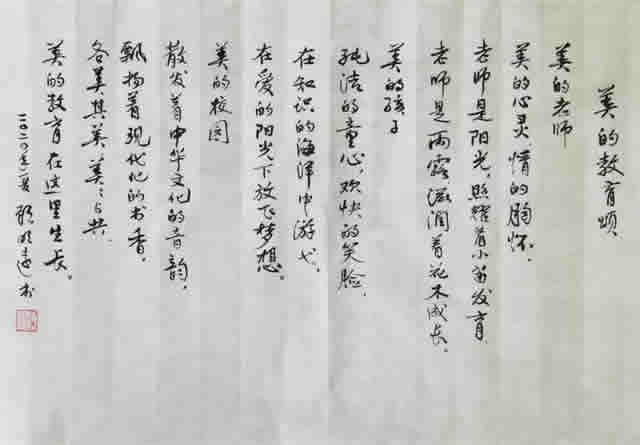 美的教育颂
美的老师
美的心灵,情的胸怀,
老师是阳光,照耀着小苗发育
老师是雨露,滋润着花木成长,
美的孩子
纯洁的童心,欢快的笑脸,
在知识的海洋中游弋,
在爱的阳光下放飞梦想。
美的校园
散发着中华文化的音韵,
飘扬着现代化的书香,
各美其美,美美与共
美的教育在这里生长。
二〇二〇年夏 顾明远书